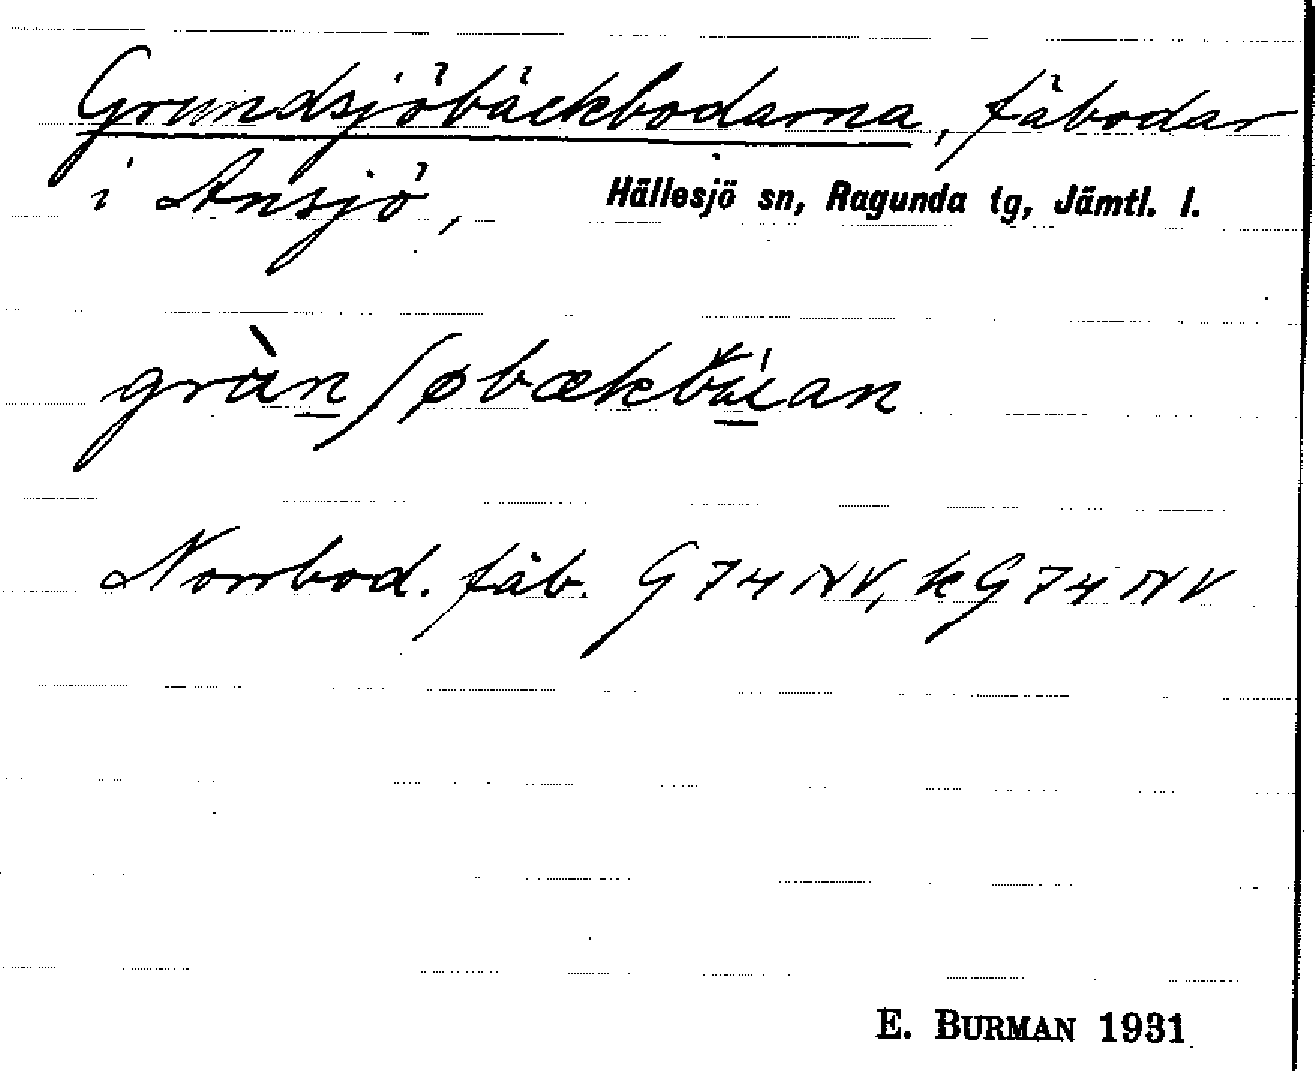 Grundsjöbäckbodarna, fäbodar
i Ansjö, Hällesjö sn, Ragunda tg, Jämtl. l.
Norrbod. fäb. G 74 NV, k G 74 NV
E. BURMAN 1931